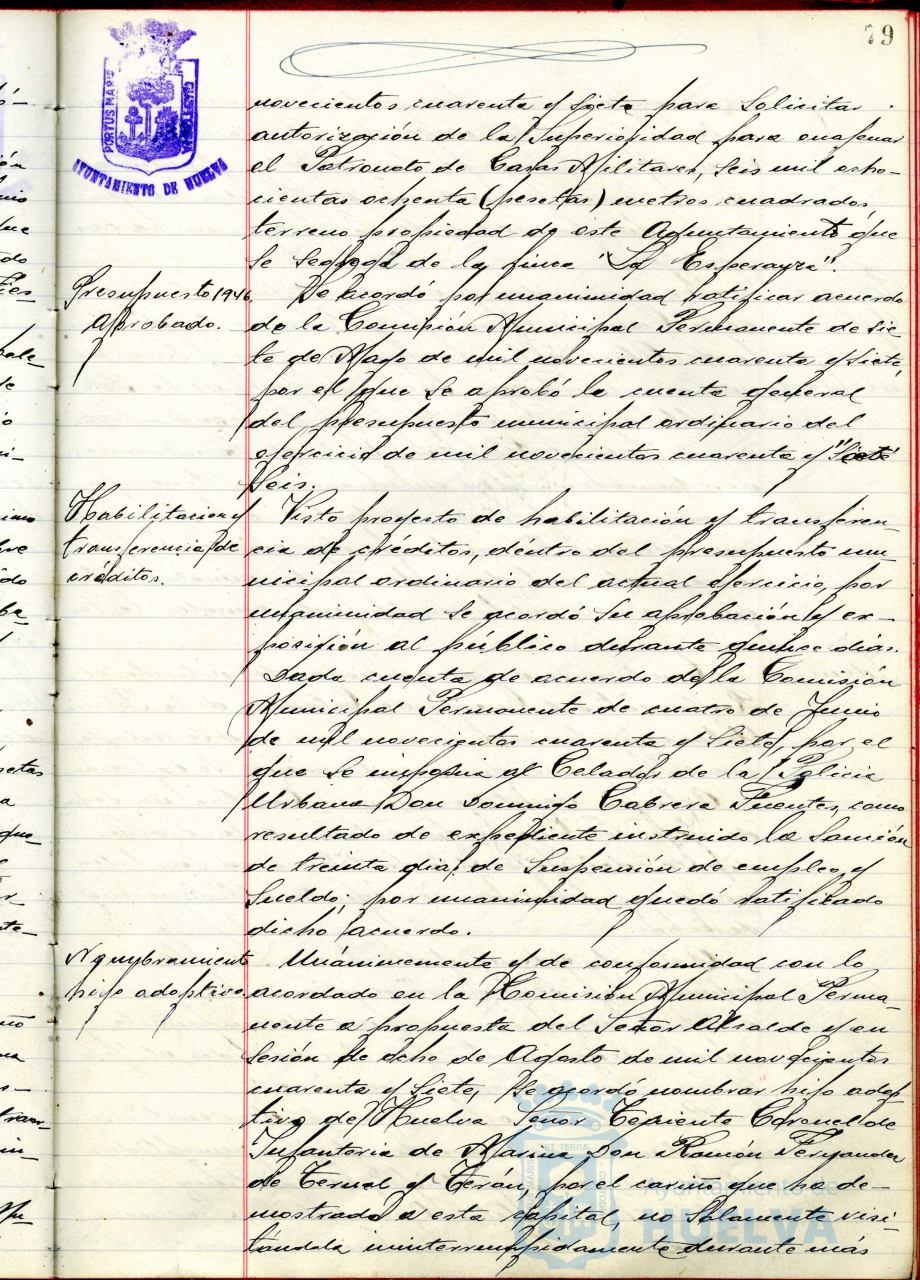 79
PORTUS MARIS
CUSTODIA
AYUNTAMIENTO DE HUELVA
novecientos cuarenta y siete para solicitar
autorización de la Superioridad para enagenar
el Patronato de Casas Militares, seis mil ocho-
cientas ochenta (pesetas) metros cuadrados
terreno propiedad de este Ayuntamiento que
se segrega de la finca "La Esperanza".
Presupuesto 1946.
Aprobado.
Se acordó por unanimidad ratificar acuerdo
de la Comisión Municipal Permanente de sie
te de Mayo de mil novecientos cuarenta y siete
por el que se aprobó la cuenta general
del presupuesto municipal ordinario del
ejercicio de mil novecientos cuarenta y "Siete
Seis.
Habilitacion y
transferencia de
créditos.
Visto proyecto de habilitación y transferen
cia de créditos, dentro del presupuesto mu
nicipal ordinario del actual ejercicio, por
unanimidad se acordó su aprobación y ex-
posición al público durante quince días.
Dada cuenta de acuerdo de la Comisión
Municipal Permanente de cuatro de Junio
de mil novecientos cuarenta y siete, por el
que se imponia al Celador de la Policia
Urbana Don Domingo Cabrera Fuentes, como
resultado de expediente instruido la sanción
de treinta dias de suspensión de empleo y
sueldo; por unanimidad quedó ratificado
dicho acuerdo.
Nombramiento
hijo adoptivo.
Unánimemente y de conformidad con lo
acordado en la Comisión Municipal Perma
nente a propuesta del Señor Alcalde y en
sesión de ocho de Agosto de mil novecientos
cuarenta y siete, se acordó nombrar hijo adop
tivo de Huelva Señor Teniente Coronel de
Infanteria de Marina Don Ramón Fernandez
de Teruel y Terán, por el cariño que ha de-
mostrado a esta capital, no solamente visi
tandola ininterrumpidamente durante más
Ayuntamiento de
HUELVA